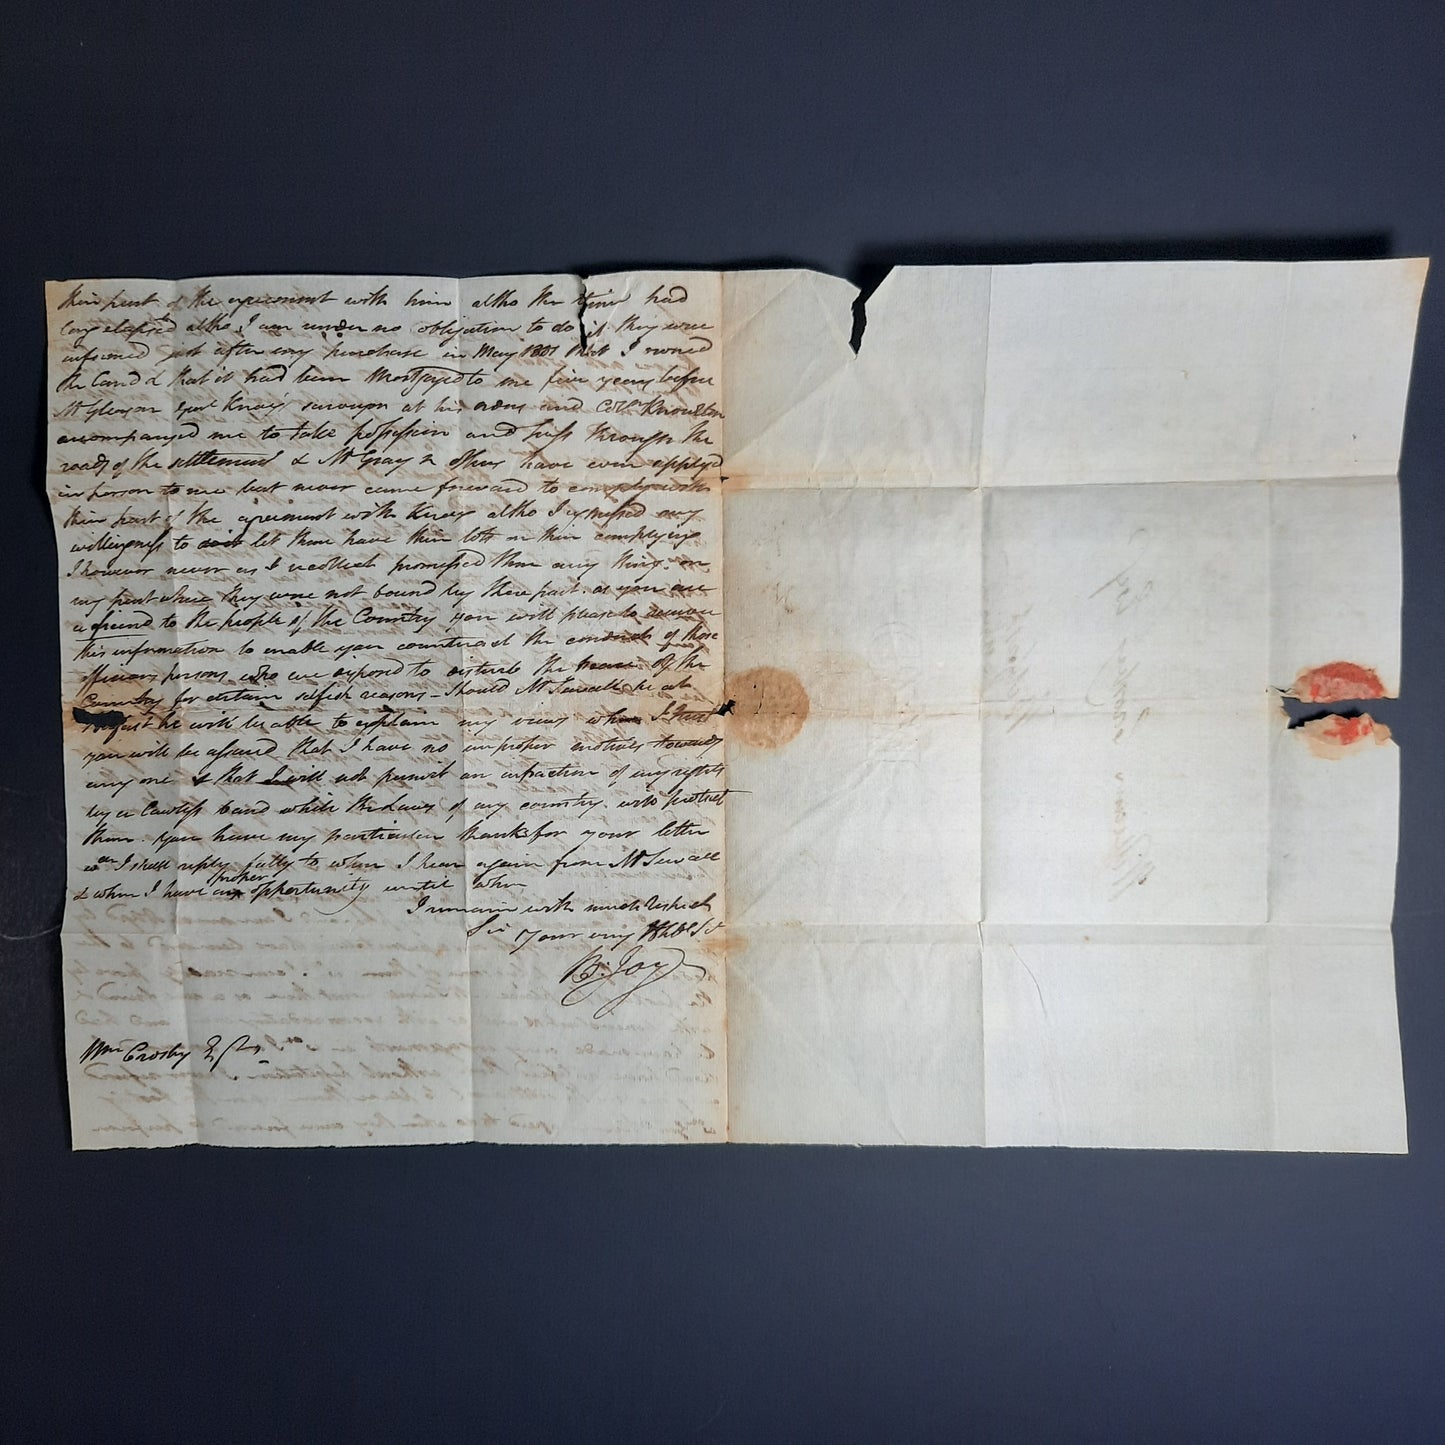 their part of the agreement with him altho the time had
long elapsed altho I am under no obligation to do it they were
informed just after my purchase in May 1801 that I owned
the Land & that it had been Mortgaged to me five years before
Mr Gleason Genl Knox's surveyor at his orders and Coln Knowlton
accompanyed me to take possession and pass through the
roads of the settlement & Mr Gray & others have even applyd
in person to me but never came forward to comply with
their part of the agreement with Knox altho I expressed my
willingness to let them have their lots on their complying
I however never as I recollect promissed them any thing on
my part where they were not bound by there part. as you are
a friend to the people of the Country you will please to receive
this information to enable you counteract the conduct of those
officious persons who are disposed to disturb the Peace of the
Country for certain selfish reasons – Should Mr Sewall be at
Belfast he will be able to explain my views when I trust
you will be assured that I have no improper motives towards
any one & that I will not permit an infraction of my rights
by a Lawless band while the Laws of my country will protect
them. you have my particular thanks for your letter
I shall reply fully to when I hear again from Mr Sewall
& when I have proper opportunity until when
I remain with much Respect
Sir your very Hble St
B: Joy
Wm Crosby Esqr